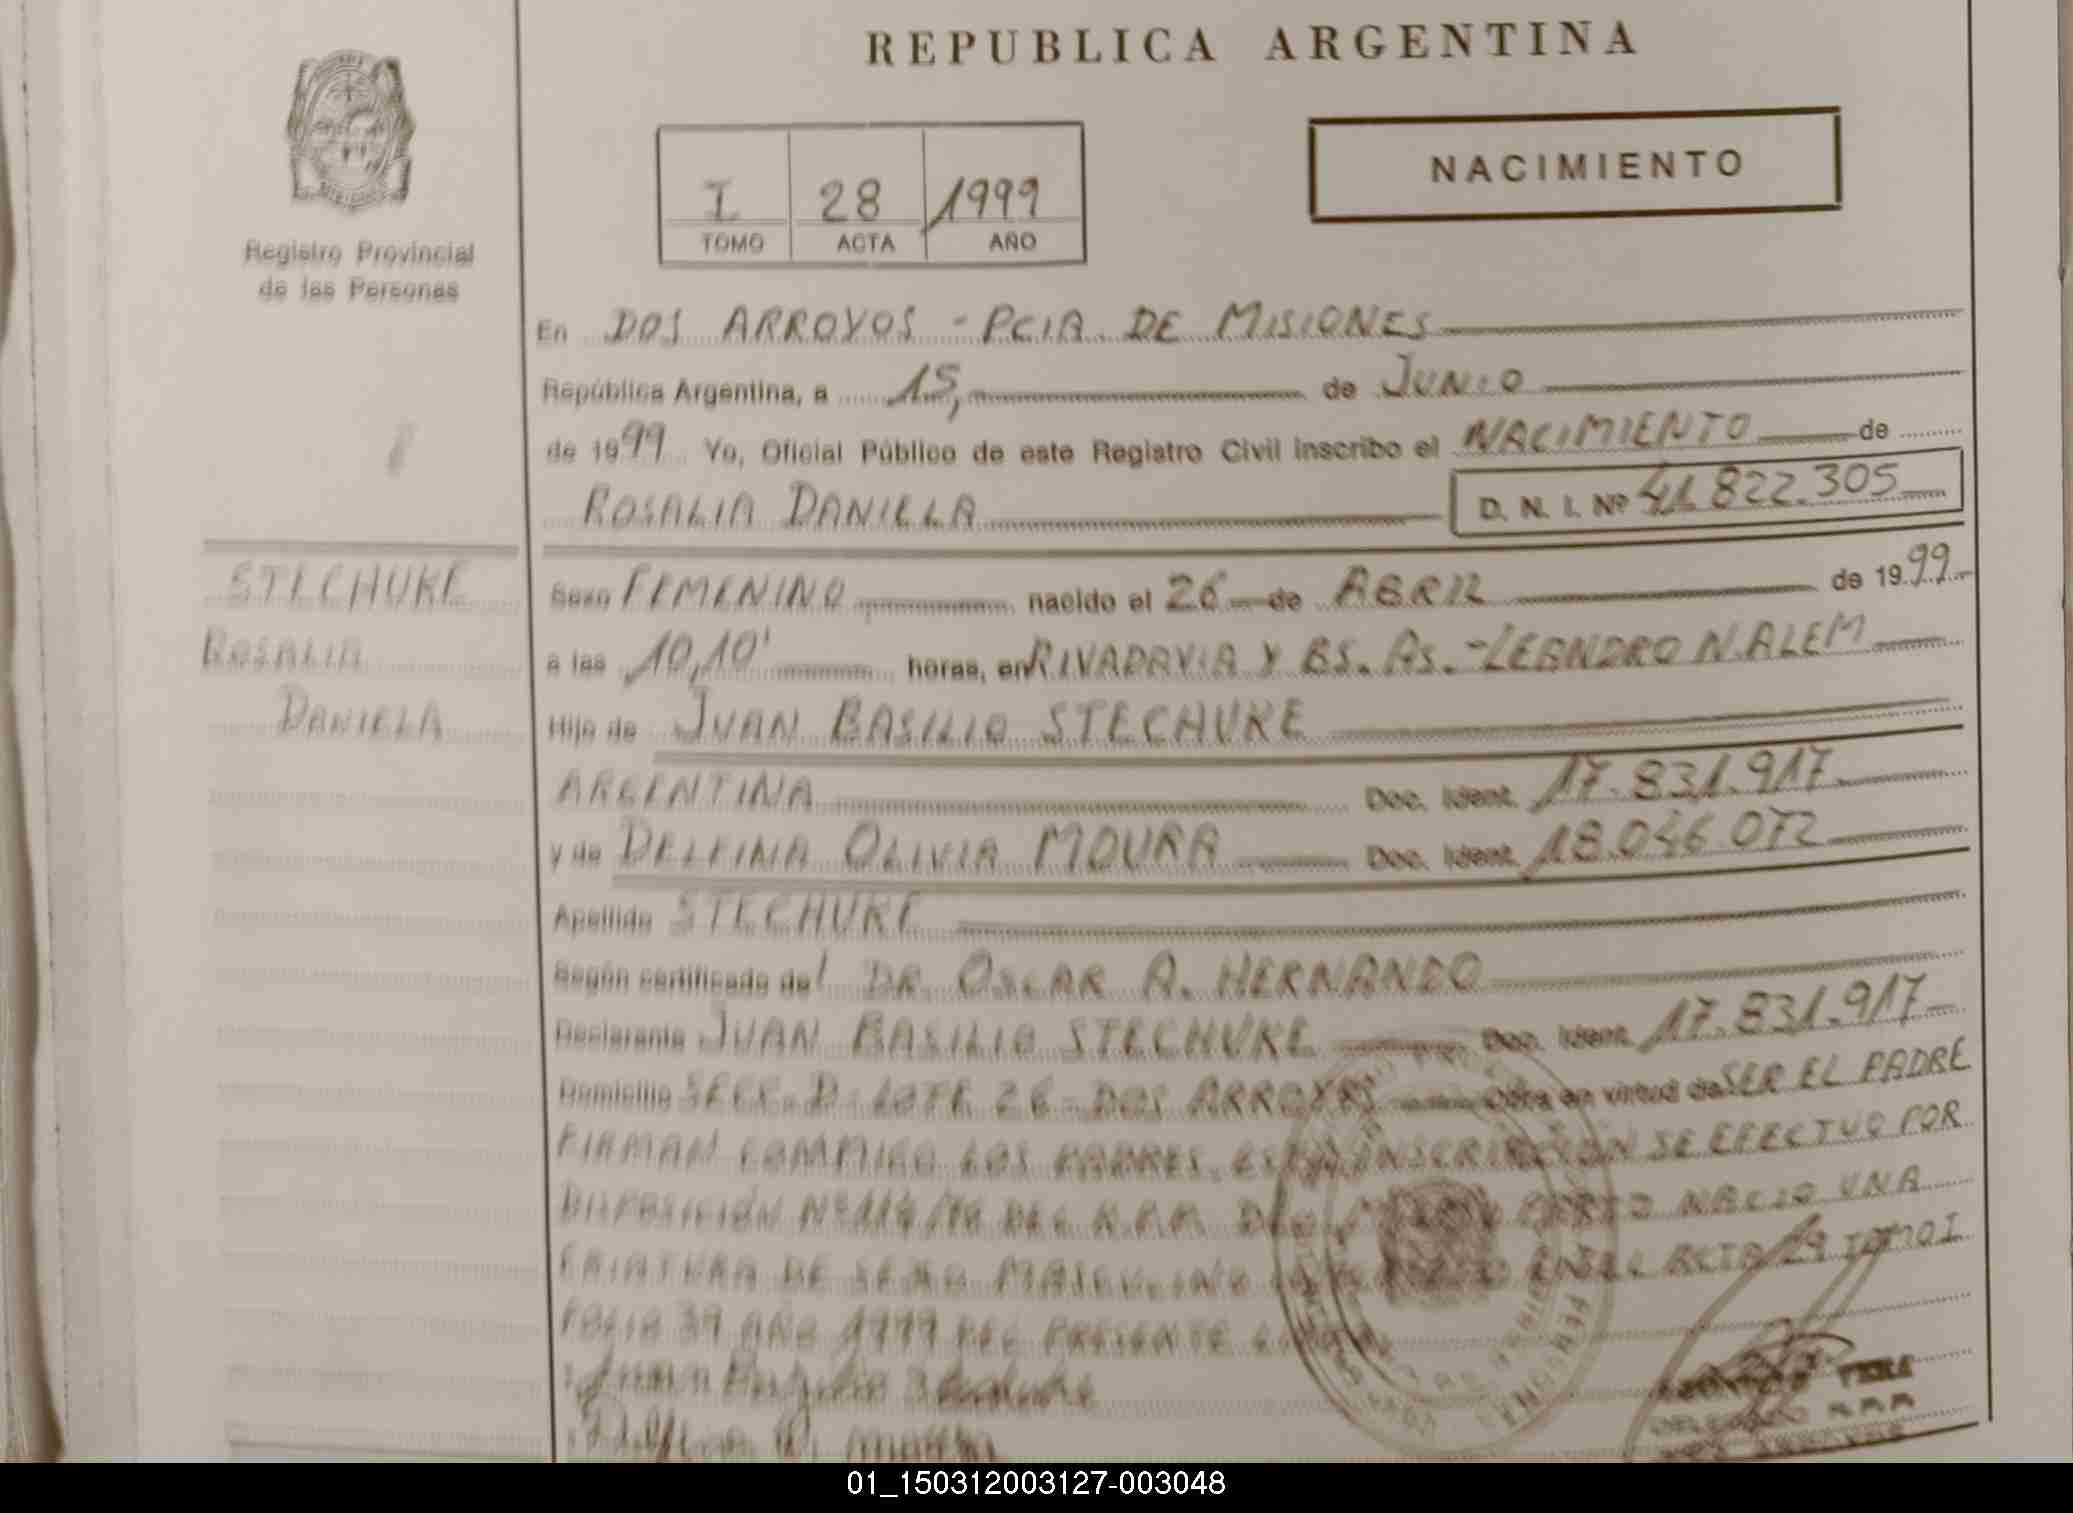 REPUBLICA ARGENTINA
NACIMIENTO
I 28 1999
TOMO ACTA AÑO
Registro Provincial
de las Personas
En DOS ARROYOS - PCIA. DE MISIONES
República Argentina, a 15, de JUNIO
de 1999 Yo, Oficial Público de este Registro Civil inscribo el NACIMIENTO de
ROSALIA DANIELA D. N. I. Nº 41.822.305
STECHUKE
ROSALIA
DANIELA
Sexo FEMENINO nacido el 26 de ABRIL de 1999
a las 10,10' horas, en RIVADAVIA Y BS. AS. - LEANDRO N. ALEM
Hijo de JUAN BASILIO STECHUKE
ARGENTINA Doc. Ident. 17.831.917
y de DELFINA OLIVIA MOURA Doc. Ident. 18.046.072
Apellido STECHUKE
Según certificado del DR. OSCAR A. HERNANDO
Declarante JUAN BASILIO STECHUKE Doc. Ident. 17.831.917
Domicilio SECC. D LOTE 26 - DOS ARROYOS Obra en virtud de SER EL PADRE
FIRMAN CONMIGO LOS PADRES. ESTA INSCRIPCION SE EFECTUO POR
DISPOSICIÓN Nº DEL R.P.P. PARTO NACIO UNA
CRIATURA DE SEXO MASCULINO EN EL ACTA 29 TOMO I
FOLIO 39 AÑO 1999 DEL PRESENTE
01_150312003127-003048